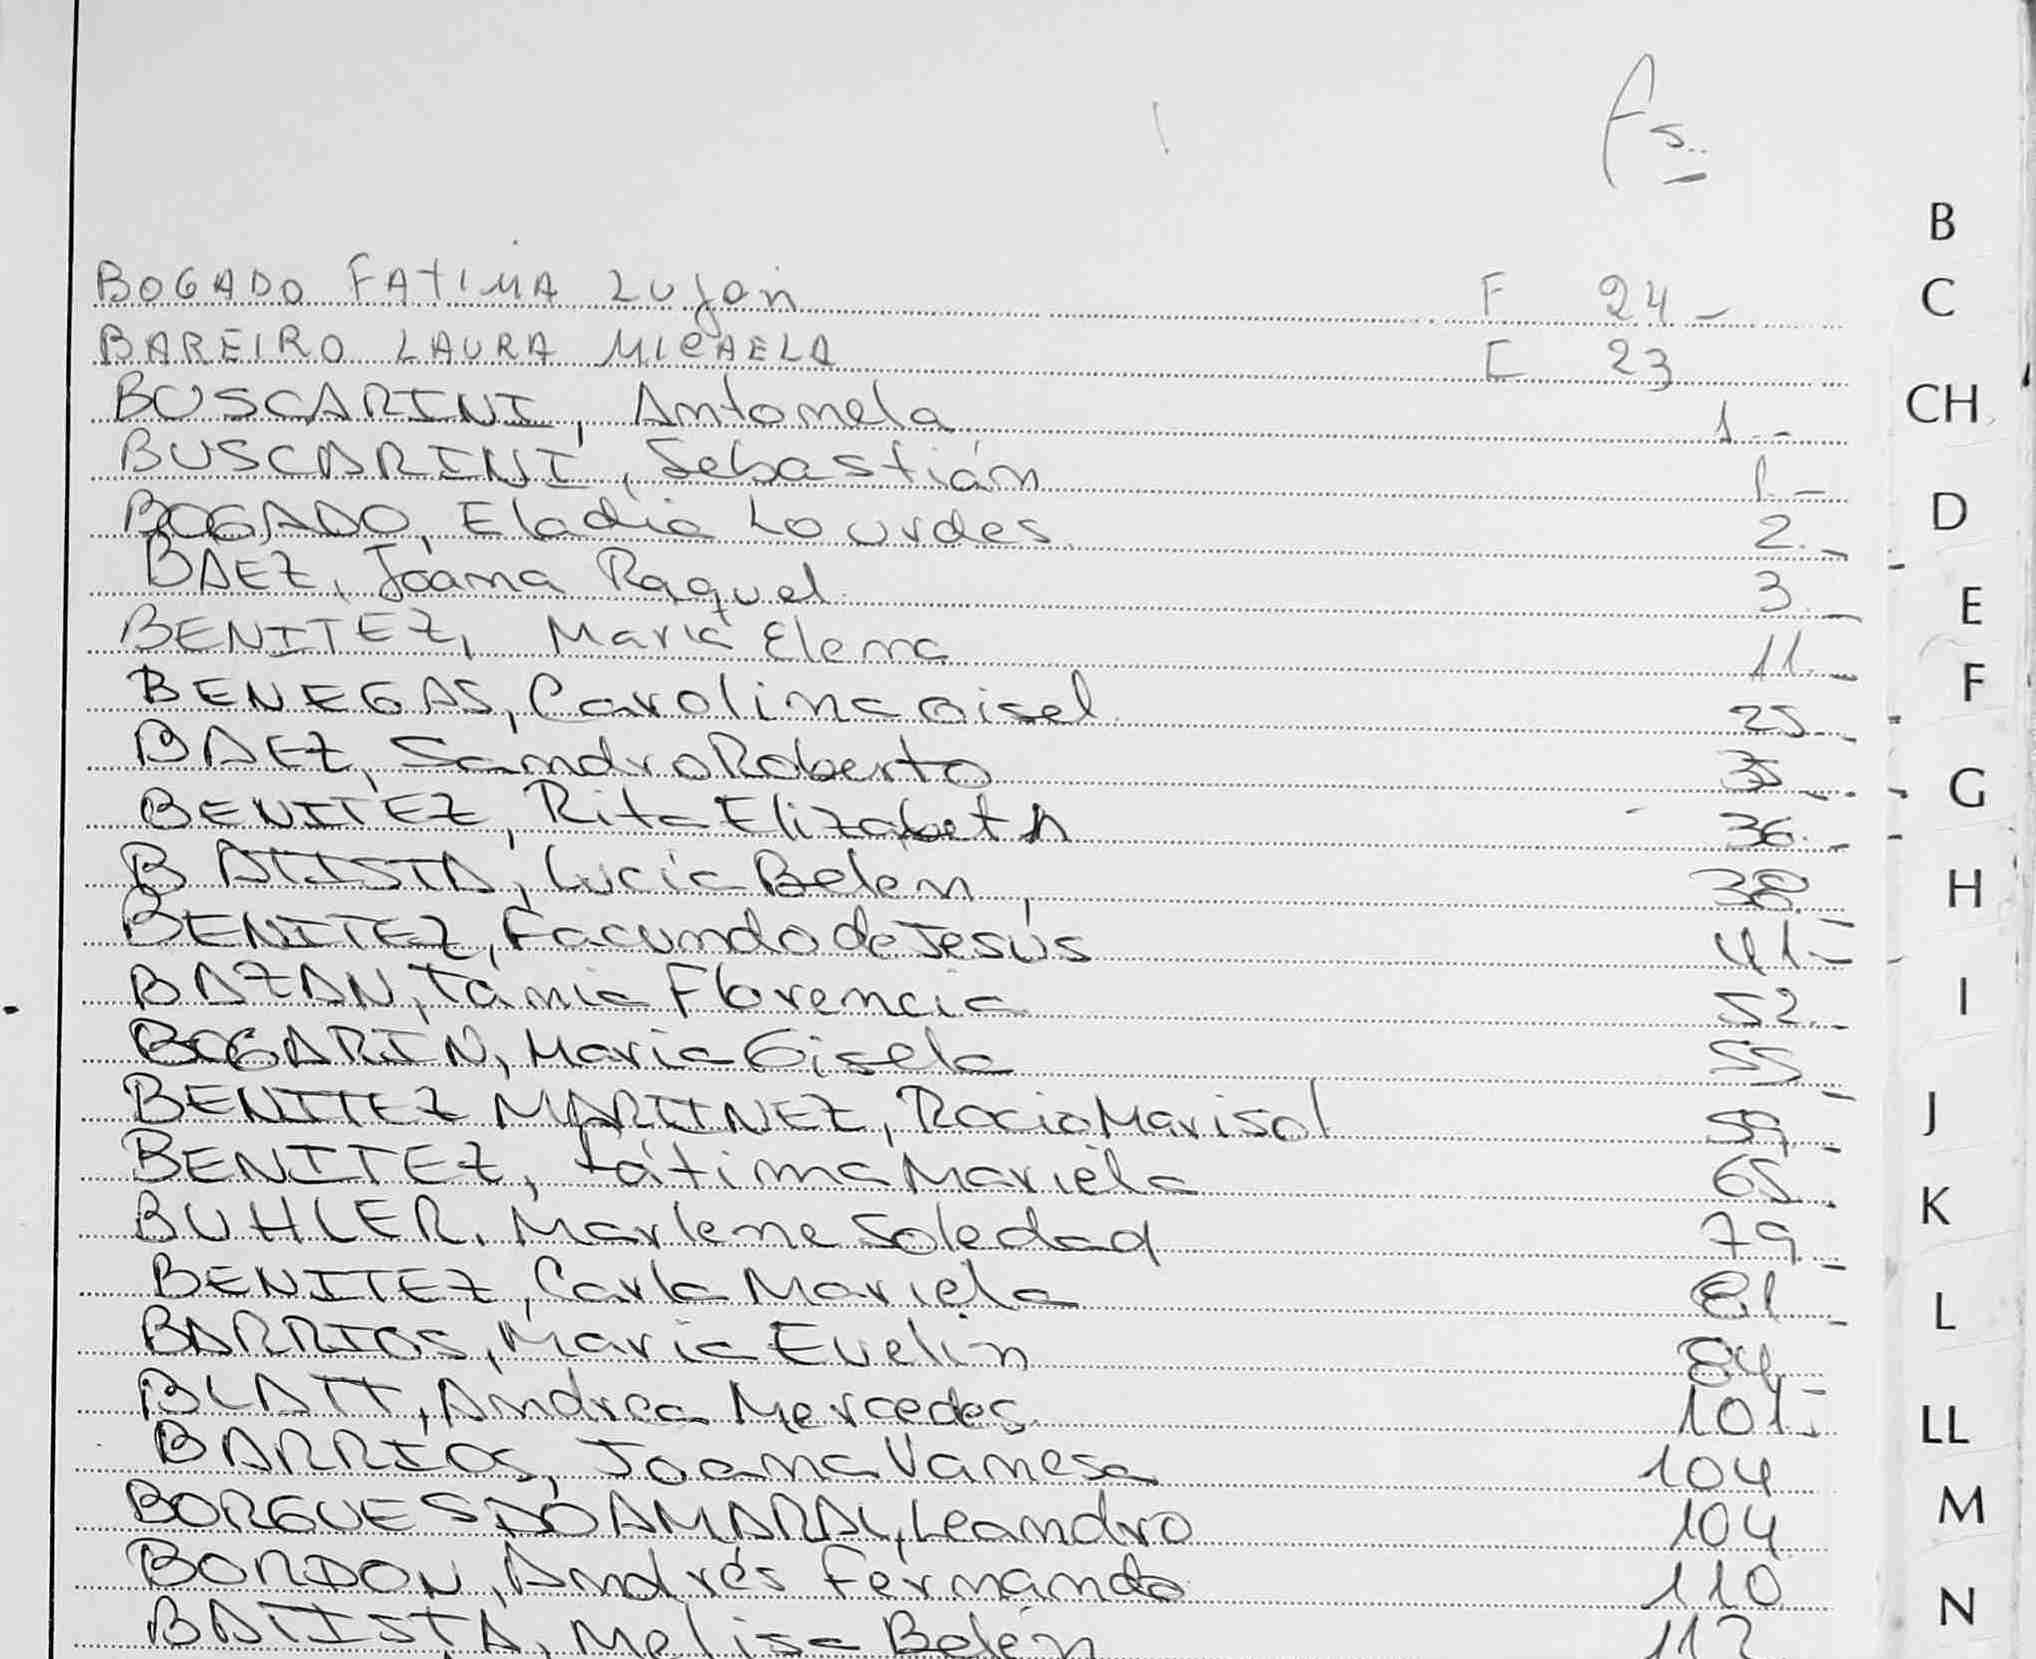 fs.
B
BOGADO FATIMA Lujan F 24-
C
BAREIRO LAURA MICAELA F 23
BUSCARINI, Antonela 1.-
CH
BUSCARINI, Sebastián 1.-
BOGADO, Eladia Lourdes 2.-
D
BAEZ, Joana Raquel 3.-
BENITEZ, Maria Elena 11.-
E
BENEGAS, Carolina Gisel 25.-
F
BAEZ, Sandro Roberto 35.-
G
BENITEZ, Rita Elizabeth 36.-
BATISTA, Lucia Belen 38.-
H
BENITEZ, Facundo de Jesús 41-
BAZAN, Tania Florencia 52.-
I
BOGARIN, Maria Gisela 55.-
BENITEZ MARTINEZ, Rocio Marisol 59.-
J
BENITEZ, Fátima Mariela 65.
BUHLER, Marlene Soledad 79.-
K
BENITEZ, Carla Mariela 81.-
L
BARRIOS, Maria Evelin 84.-
BLATT, Andrea Mercedes 101.-
LL
BARRIOS, Joana Vanesa 104
BORGUES DO AMARAL, Leandro 104
M
BORDON, Andrés Fernando 110
BATISTA, Melisa Belén 112
N